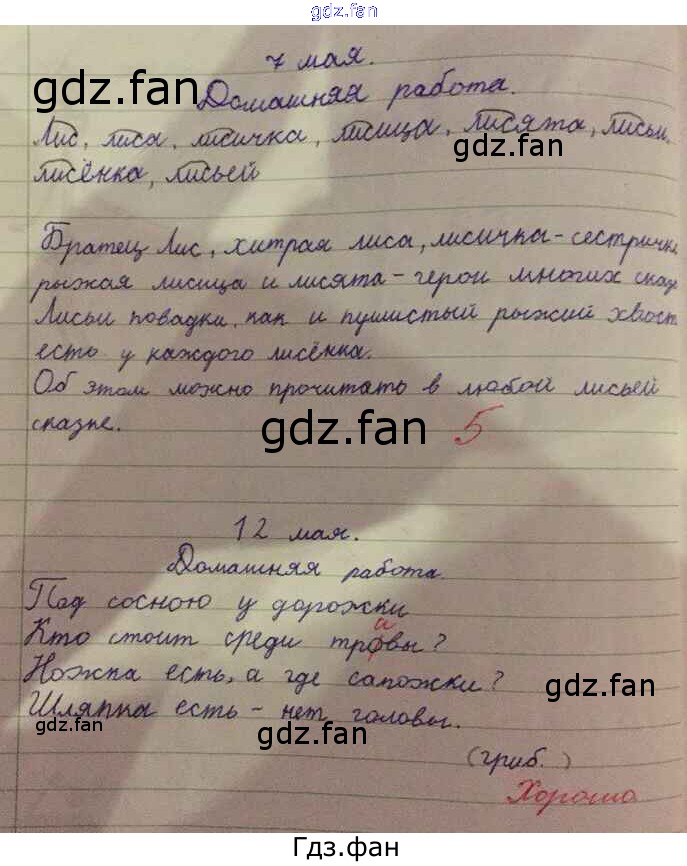 gdz.fan
7 мая.
gdz.fan
Домашняя работа.
Лис, лиса, лисичка, лисица, лисята, лисьи,
gdz.fan
лисёнка, лисьей
Братец Лис, хитрая лиса, лисичка-сестричка
рыжая лисица и лисята - герои многих сказ
Лисьи повадки, как и пушистый рыжий хвост
есть у каждого лисёнка.
Об этом можно прочитать в любой лисьей
сказке.
gdz.fan
5
12 мая.
Домашняя работа.
Под сосною у дорожки
а
Кто стоит среди тровы?
Ножка есть, а где сапожки?
gdz.fan
Шляпка есть - нет головы.
gdz.fan
gdz.fan
(гриб.)
Хорошо
Гдз.фан